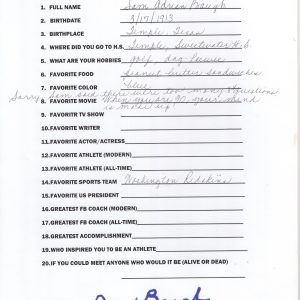 1. FULL NAME Sam Adrian Baugh
2. BIRTHDATE 3/17/1913
3. BIRTHPLACE Temple, Texas
4. WHERE DID YOU GO TO H.S. Temple, Sweetwater H.S
5. WHAT ARE YOUR HOBBIES golf,
6. FAVORITE FOOD Peanut butter sandwiches
7. FAVORITE COLOR blue
Sorry, Sam said there were too many questions
8. FAVORITE MOVIE When you are 90, your mind
is made up!
9. FAVORIRT TV SHOW
10. FAVORITE WRITER
11. FAVORITE ACTOR/ACTRESS
12. FAVORITE ATHLETE (MODERN)
13. FAVORITE ATHLETE (ALL-TIME)
14. FAVORITE SPORTS TEAM Washington Redskins
15. FAVORITE US PRESIDENT
16. GREATEST FB COACH (MODERN)
17. GREATEST FB COACH (ALL-TIME)
18. GREATEST ACCOMPLISHMENT
19. WHO INSPIRED YOU TO BE AN ATHLETE
20. IF YOU COULD MEET ANYONE WHO WOULD IT BE (ALIVE OR DEAD)
Baugh